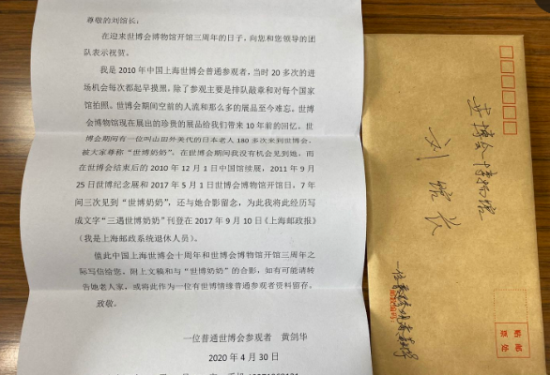 尊敬的刘馆长：
在迎来世博会博物馆开馆三周年的日子，向您和您领导的团
队表示祝贺。
我是 2010 年中国上海世博会普通参观者，当时 20 多次的进
场机会每次都起早摸黑，除了参观主要是排队敲章和对每个国家
馆拍照。世博会期间空前的人流和那么多的展品至今难忘。世博
会博物馆现在展出的珍贵的展品给我们带来 10 年前的回忆。世
博会期间有一位叫山田外美代的日本老人 180 多次来到世博会，
被大家尊称“世博奶奶”。在世博会期间我没有机会见到她，而
在世博会结束后的 2010 年 12 月 1 日中国馆续展，2011 年 9 月
25 日世博纪念展和 2017 年 5 月 1 日世博会博物馆开馆日，7 年
间三次见到“世博奶奶”，还与她合影留念，为此我将此经历写
成文字“三遇世博奶奶”刊登在 2017 年 9 月 10 日《上海邮政报》
（我是上海邮政系统退休人员）。
值此中国上海世博会十周年和世博会博物馆开馆三周年之
际写信给您，附上文稿和与“世博奶奶”的合影，如有可能请转
告她老人家，或将此作为一位有世博情缘普通参观者资料留存。
致敬。
一位普通世博会参观者 黄剑华
2020 年 4 月 30 日
世博会博物馆
刘馆长
一位
邮
票
贴
处